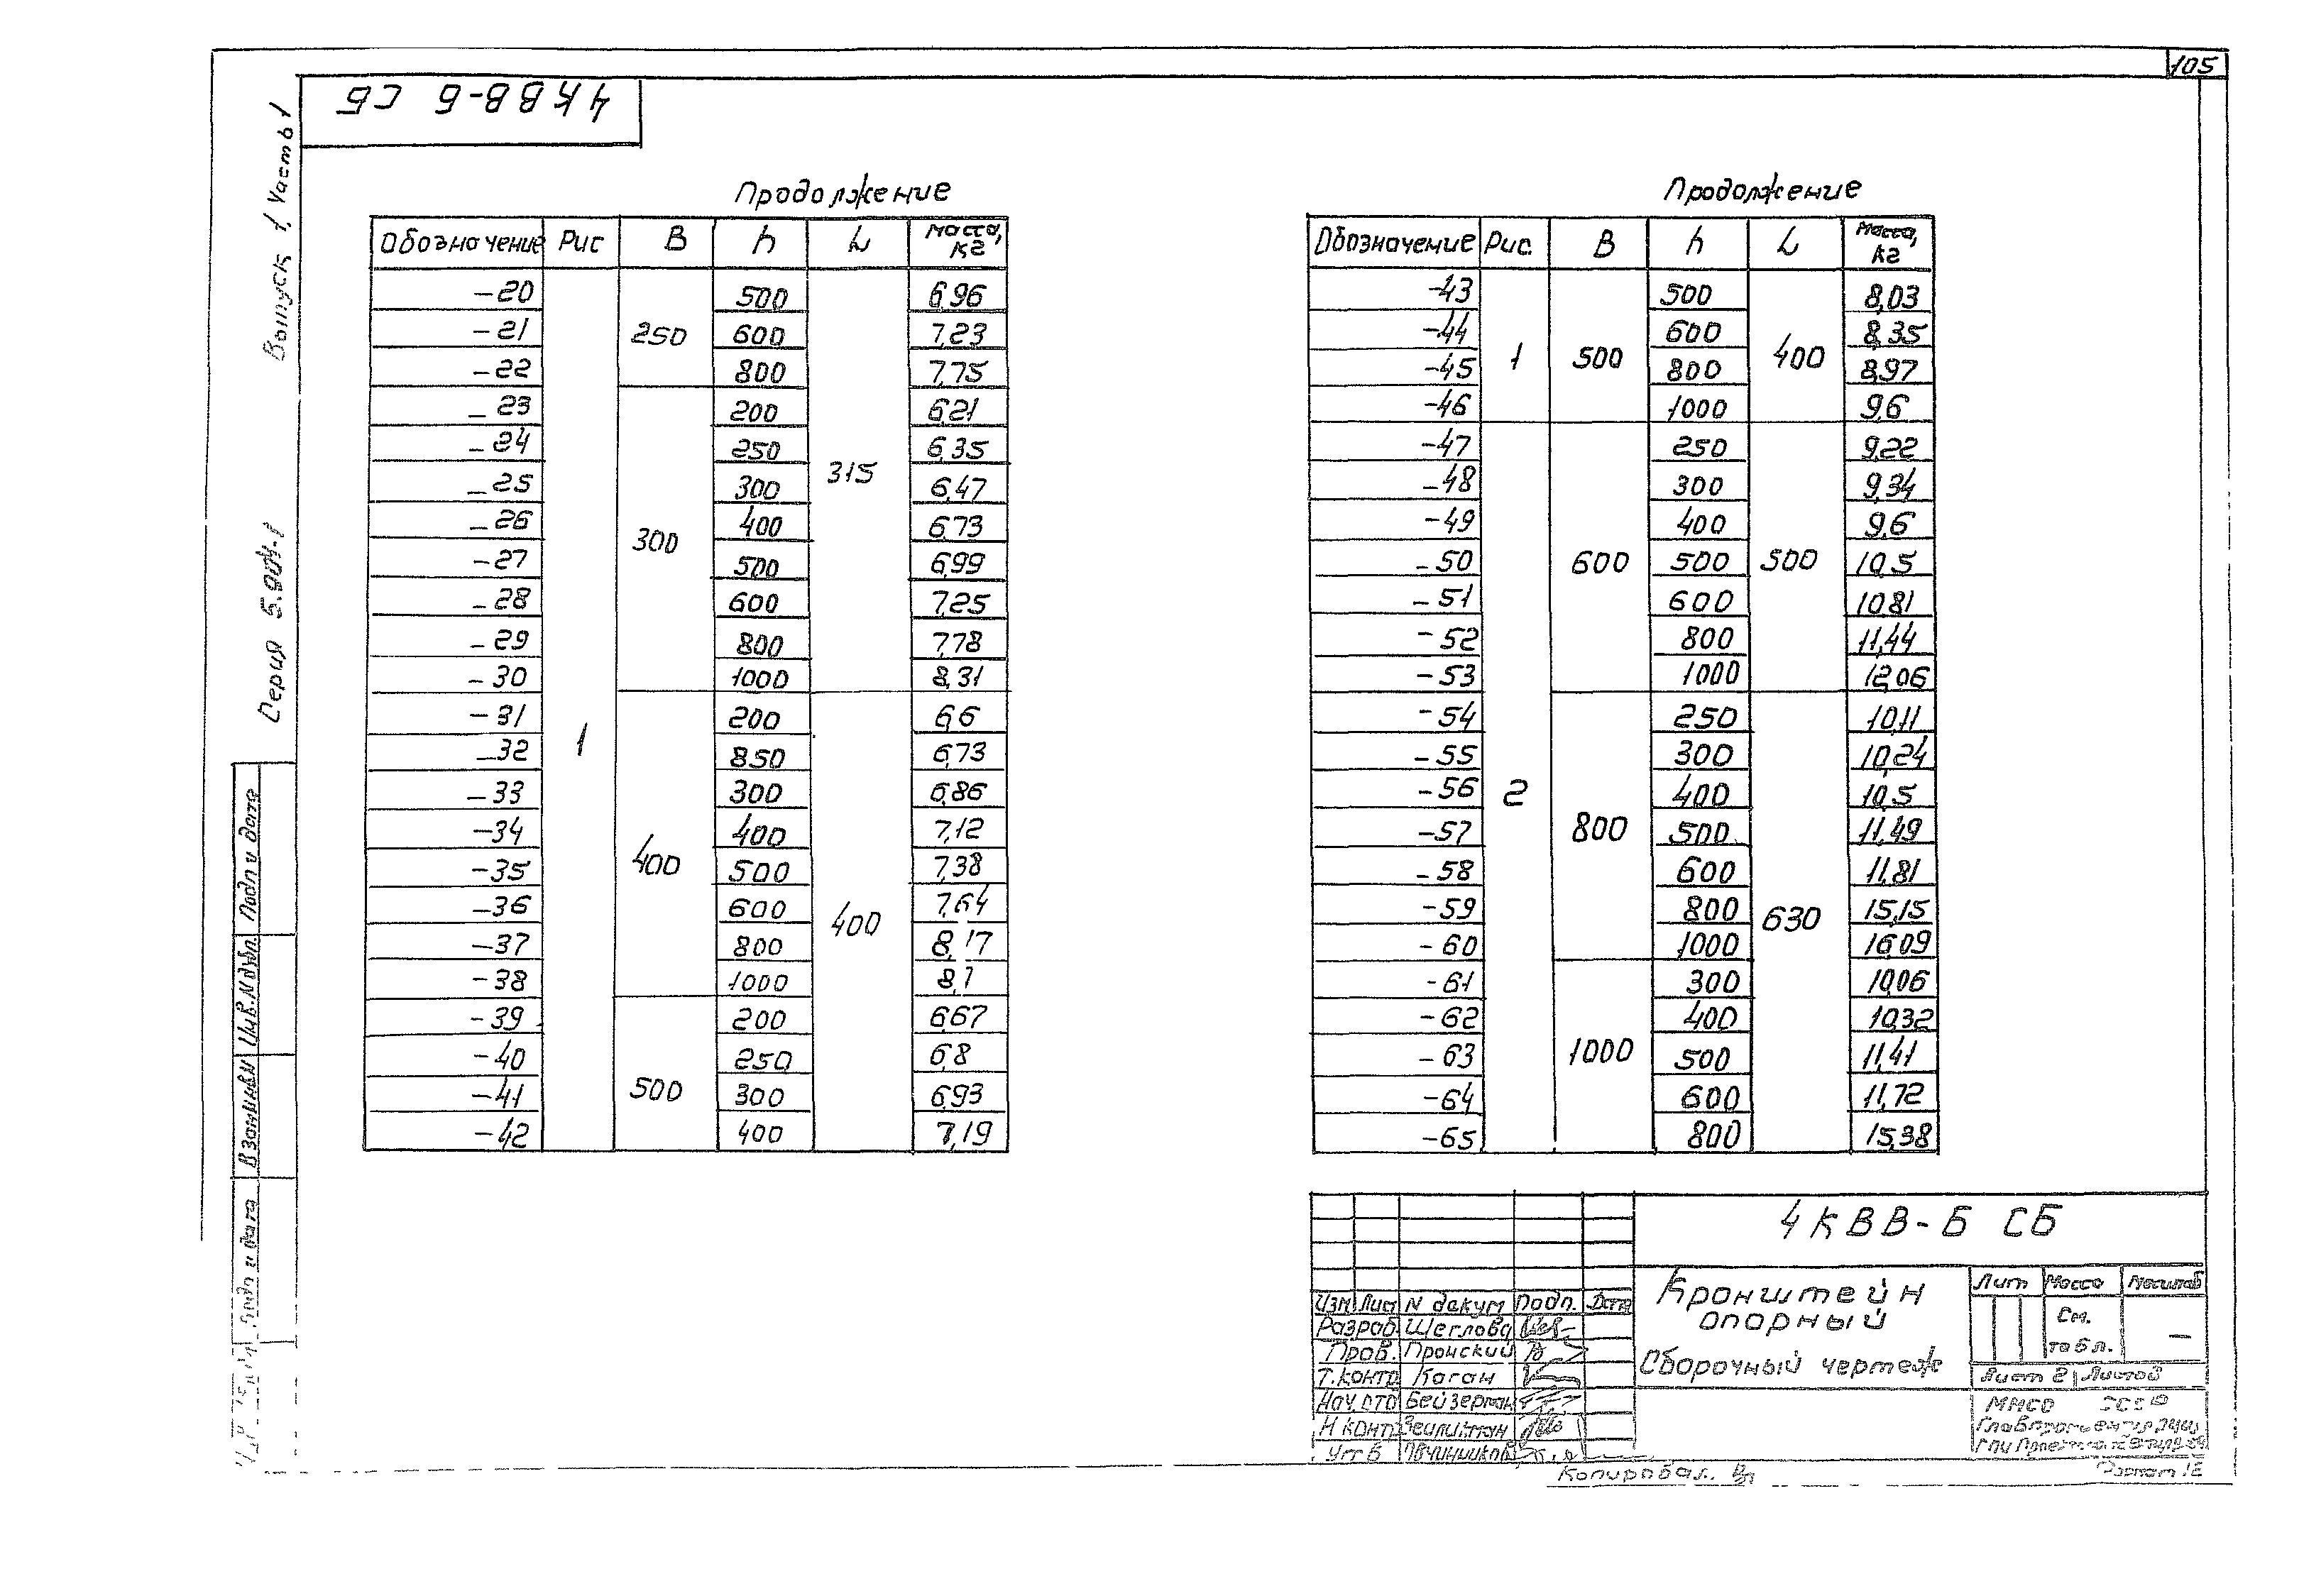 105
4КВВ-Б СБ
Выпуск 1, Часть 1
Серия 5.904-1
Продолжение
Обозначение Рис В h L Масса, кг
-20 1 250 500 315 6,96
-21 600 7,23
-22 800 7,75
-23 300 200 6,21
-24 250 6,35
-25 300 6,47
-26 400 6,73
-27 500 6,99
-28 600 7,25
-29 800 7,78
-30 1000 8,31
-31 400 200 400 6,6
-32 850 6,73
-33 300 6,86
-34 400 7,12
-35 500 7,38
-36 600 7,64
-37 800 8,17
-38 1000 8,7
-39 500 200 6,67
-40 250 6,8
-41 300 6,93
-42 400 7,19
Продолжение
Обозначение Рис. В h L Масса, кг
-43 1 500 500 400 8,03
-44 600 8,35
-45 800 8,97
-46 1000 9,6
-47 2 600 250 500 9,22
-48 300 9,34
-49 400 9,6
-50 500 10,5
-51 600 10,81
-52 800 11,44
-53 1000 12,06
-54 800 250 630 10,11
-55 300 10,24
-56 400 10,5
-57 500 11,49
-58 600 11,81
-59 800 15,15
-60 1000 16,09
-61 1000 300 10,06
-62 400 10,32
-63 500 11,41
-64 600 11,72
-65 800 15,38
Подп и дата
Инв.N дубл.
Взам инв N
Подп и дата
4КВВ-Б СБ
Кронштейн
опорный
Сборочный чертеж
Лит Масса Масштаб
См.
табл. —
Лист 2 Листов
Изм Лист N докум Подп. Дата
Разраб. Щеглова
Пров. Пронский
Т.контр Коган
Нач. отд Бейзерман
Н контр
Утв Овчинников
Копировал.
Формат 12